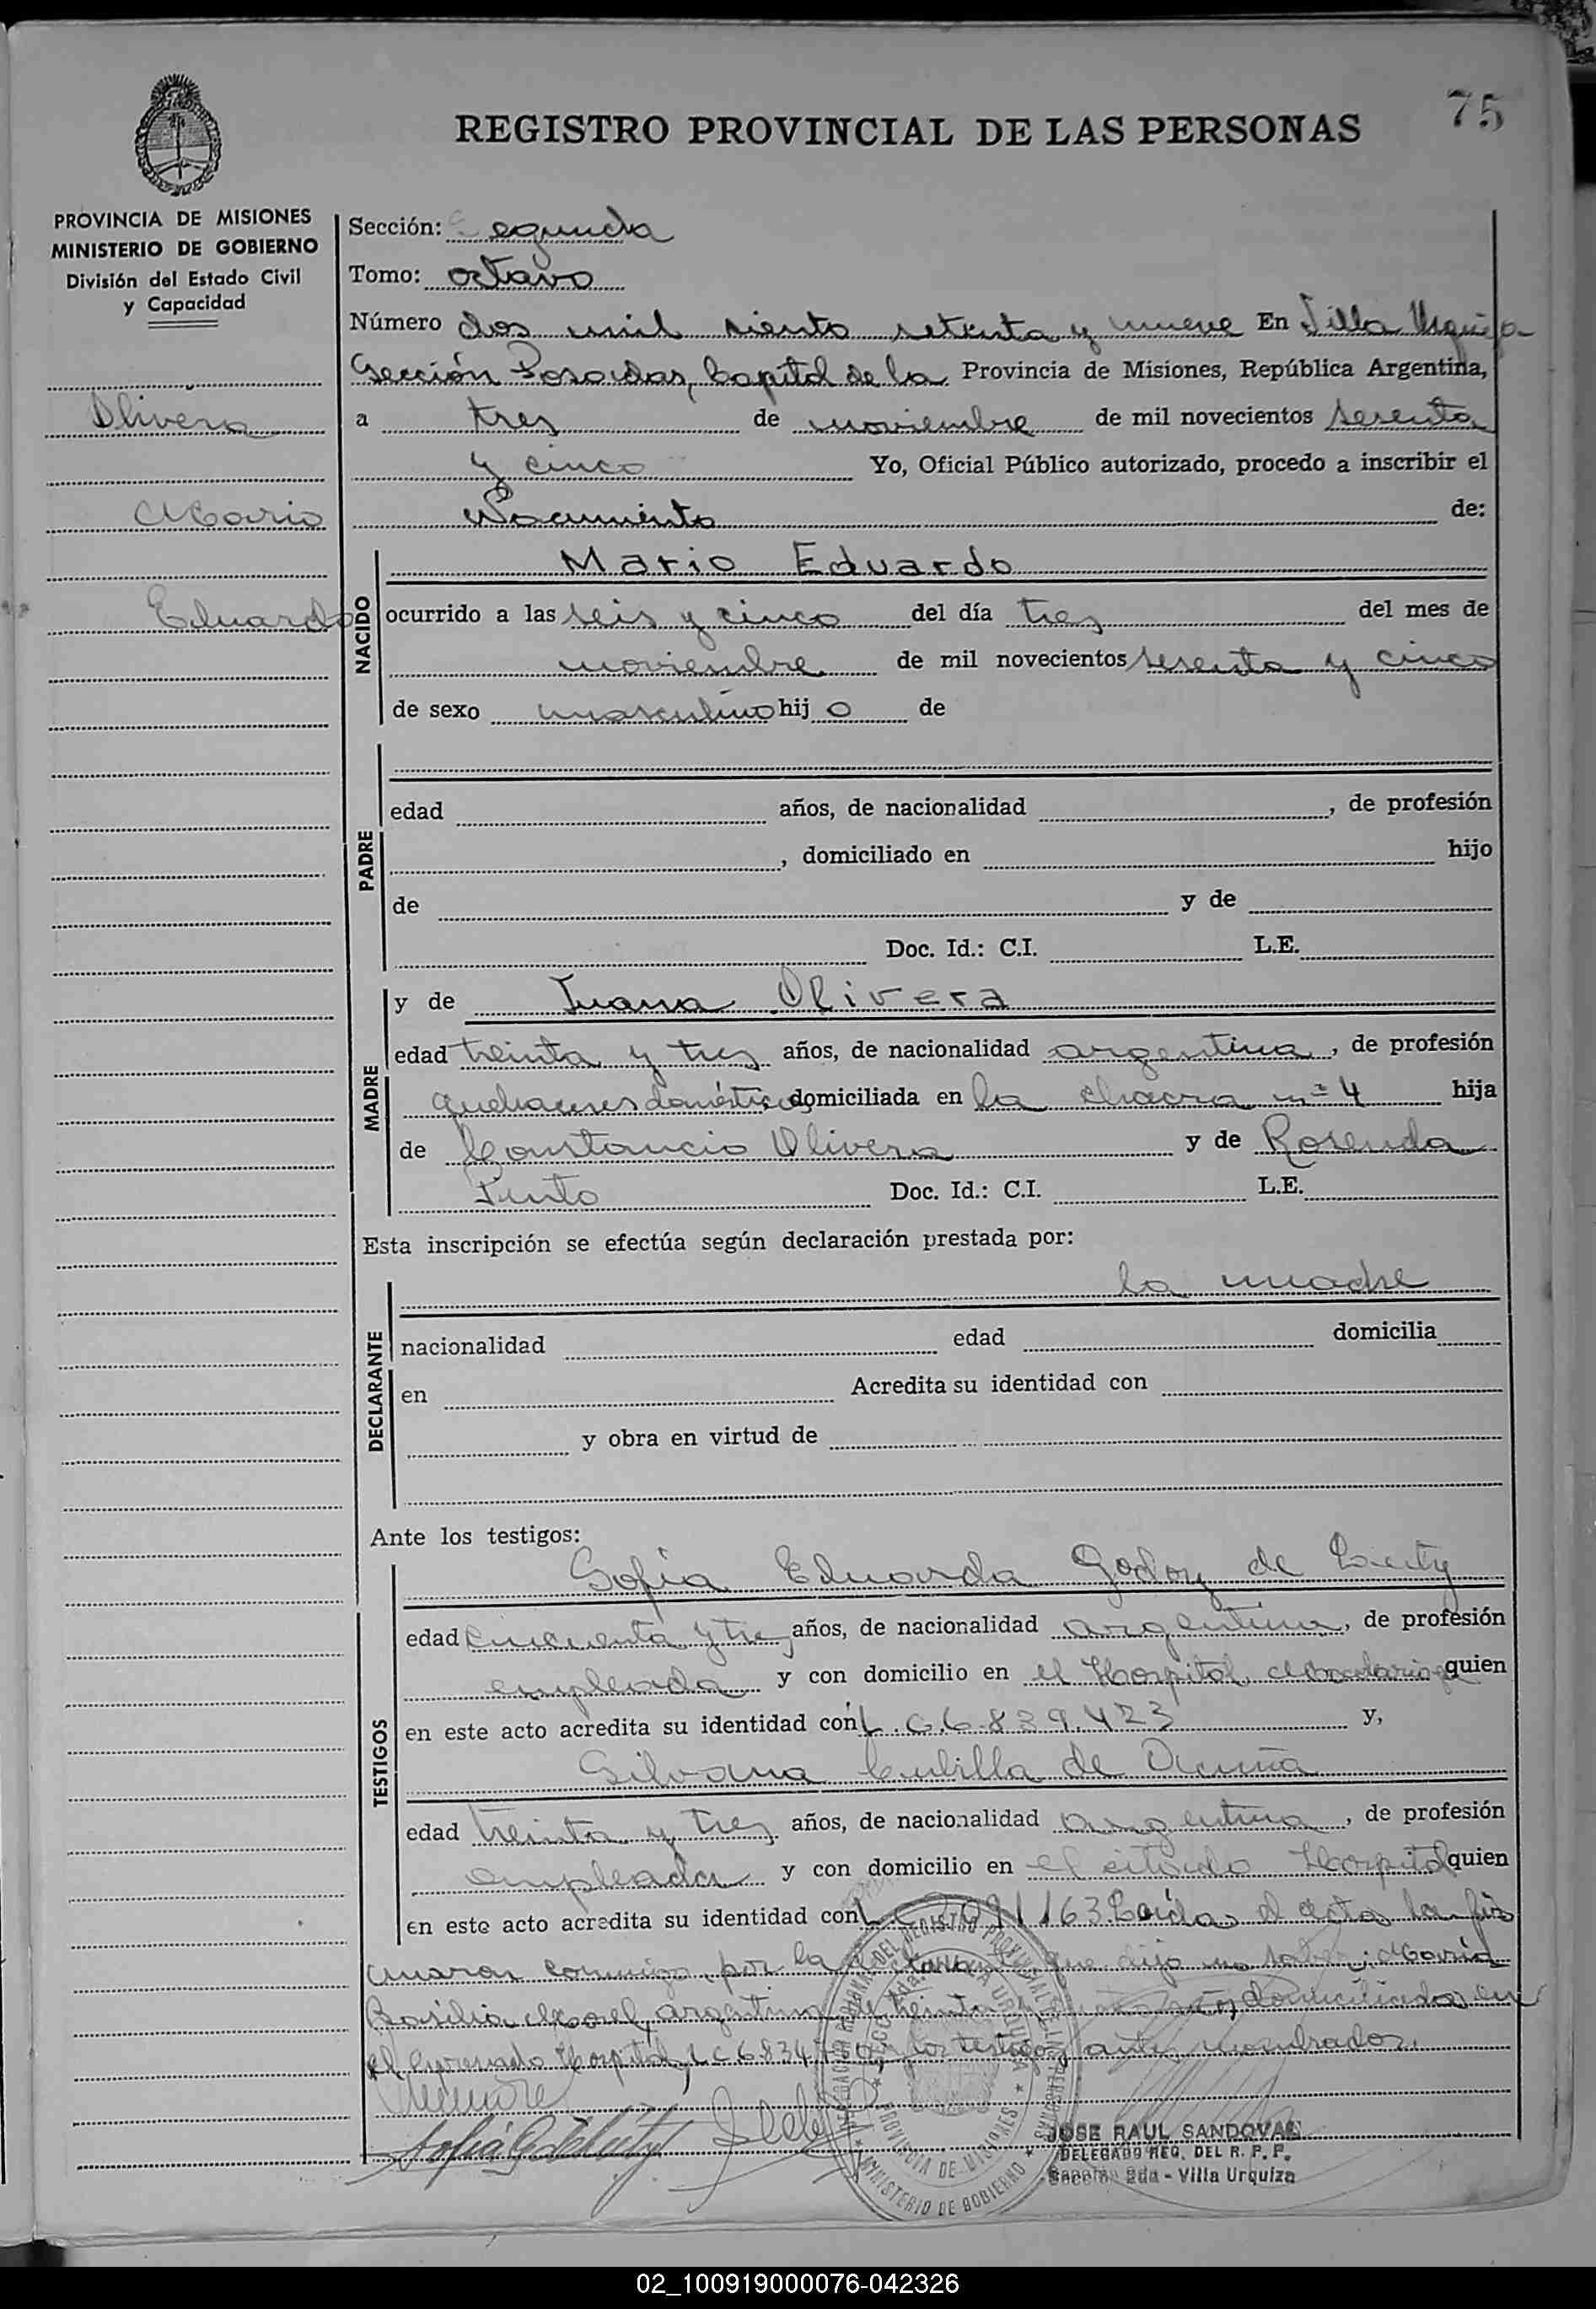 75
REGISTRO PROVINCIAL DE LAS PERSONAS
PROVINCIA DE MISIONES
MINISTERIO DE GOBIERNO
División del Estado Civil
y Capacidad
Olivera
Mario
Eduardo
Sección: Segunda
Tomo: octavo
Número dos mil siento setenta y nueve En Villa Urquiza
Sección Posadas, Capital de la Provincia de Misiones, República Argentina,
a tres de noviembre de mil novecientos sesenta
y cinco Yo, Oficial Público autorizado, procedo a inscribir el
Nacimiento de:
NACIDO
Mario Eduardo
ocurrido a las seis y cinco del día tres del mes de
noviembre de mil novecientos sesenta y cinco
de sexo masculino hij o de
PADRE
edad años, de nacionalidad , de profesión
, domiciliado en hijo
de y de
Doc. Id.: C.I. L.E.
MADRE
y de Juana Olivera
edad treinta y tres años, de nacionalidad argentina, de profesión
quehaceres domésticos domiciliada en la chacra nº 4 hija
de Constancio Olivera y de Rosenda
Pinto Doc. Id.: C.I. L.E.
Esta inscripción se efectúa según declaración prestada por:
DECLARANTE
la madre
nacionalidad edad domicilia
en Acredita su identidad con
y obra en virtud de
Ante los testigos:
TESTIGOS
Sofia Eduarda Godoy de
edad cincuenta y tres años, de nacionalidad argentina, de profesión
empleada y con domicilio en el Hospital quien
en este acto acredita su identidad con L.C. 6.839.423 y,
Silvana Cubilla de Acuña
edad treinta y tres años, de nacionalidad argentina, de profesión
empleada y con domicilio en el citado Hospital quien
en este acto acredita su identidad con L.C. Leída el acta la fir
maron conmigo, por la declarante que dijo no saber: María
Basilia argentina, de treinta y años domiciliada en
el expresado Hospital, L C 6834 y los testigos antes nombrados.
JOSE RAUL SANDOVAL
DELEGADO REG. DEL R. P. P.
Sección 2da - Villa Urquiza
PROVINCIA DE MISIONES
MINISTERIO DE GOBIERNO
02_100919000076-042326